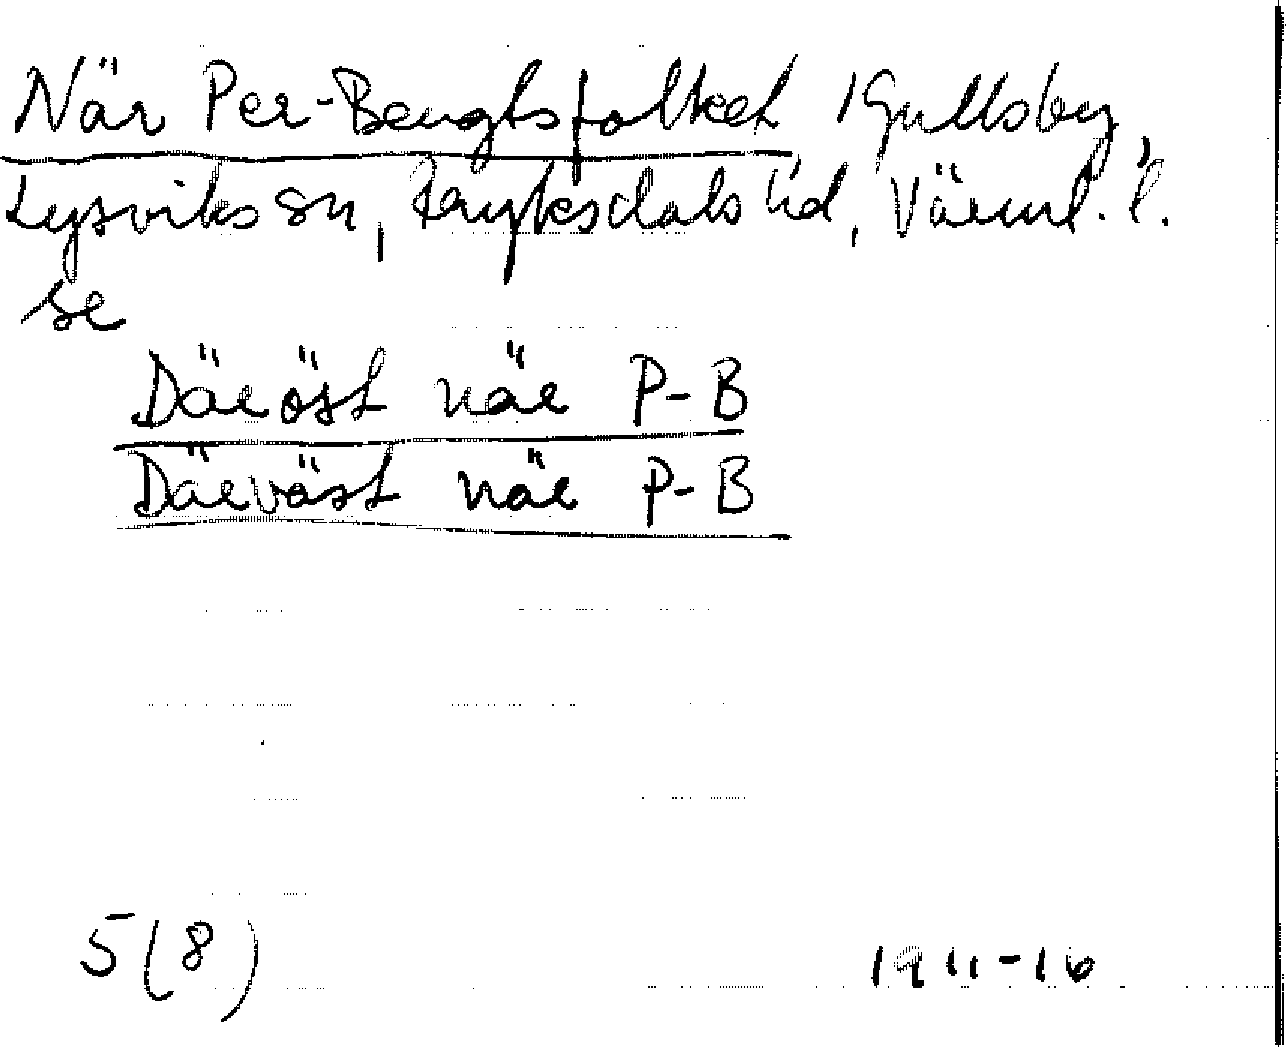 När Per-Bengtsfolket i Gullsby,
Lysviks sn, Fryksdals hd, Värml. l.
se
Däröst när P-B
Därväst när P-B
5(8) 1911-16